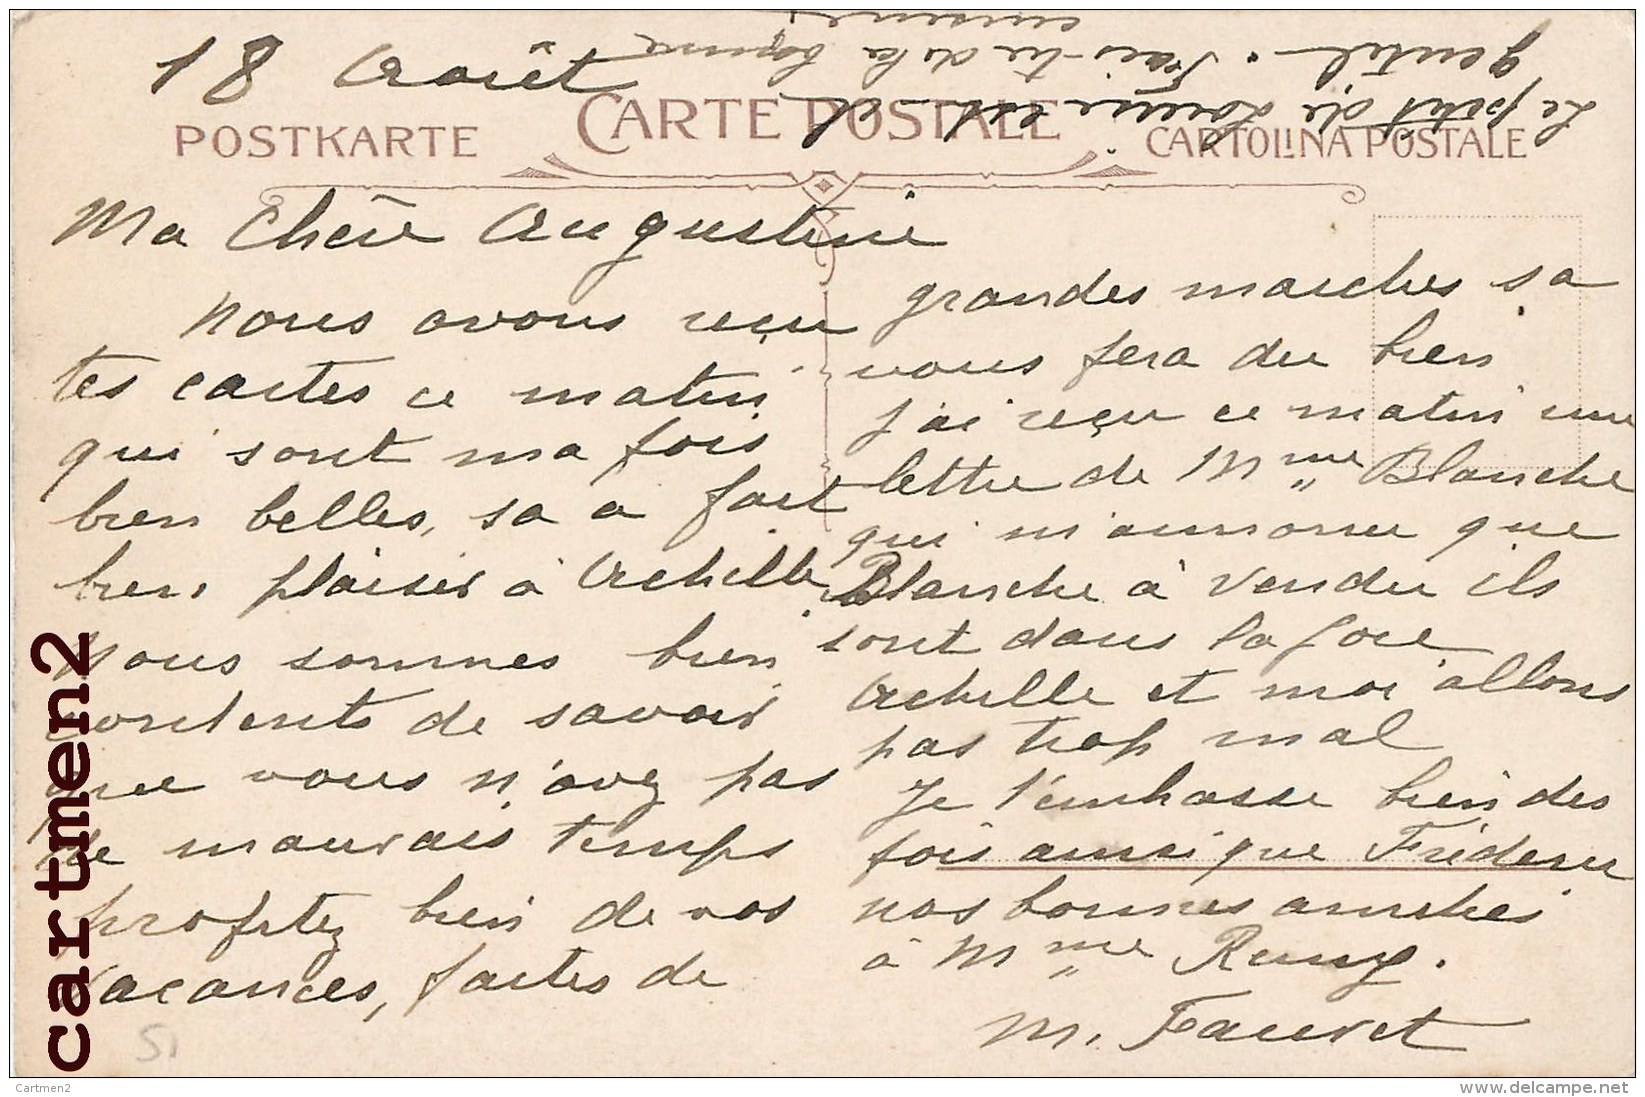 18 Août
CARTE POSTALE
POSTKARTE
CARTOLINA POSTALE
Ma Chère Augustine
Nous avons reçu
tes cartes ce matin
qui sont ma fois
bien belles, sa a fait
bien plaisir à Achille
Nous sommes bien
contents de savoir
que vous n'avez pas
de mauvais temps
profitez bien de vos
vacances, faites de
grandes marches sa
vous fera du bien
j'ai reçu ce matin une
lettre de Mme Blanche
qui m'annonce que
Blanche à vendu ils
sont dans la joie
Achille et moi allons
pas trop mal
Je t'embrasse bien des
fois ainsi que
nos bonnes amitiés
à Mme Remy.
M. Fauvet
Le petit de Louise est
gentil. Fais-tu de la bonne
cuisine
cartmen2
Cartmen2
www.delcampe.net